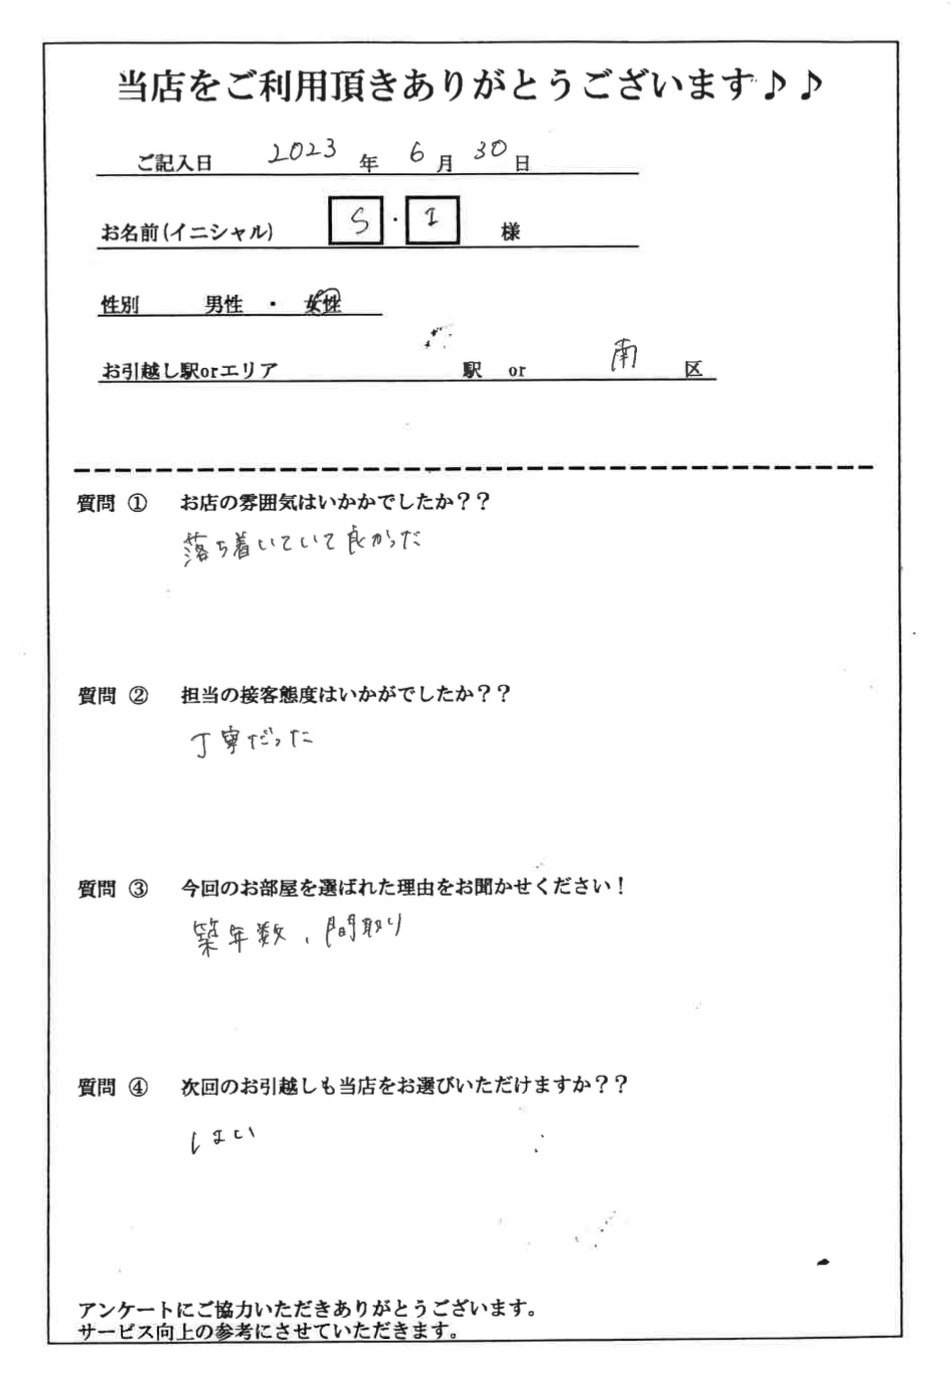 当店をご利用頂きありがとうございます♪♪
ご記入日 2023 年 6 月 30 日
お名前(イニシャル) S・I 様
性別 男性 ・ 女性
お引越し駅orエリア 駅 or 南 区
質問 ① お店の雰囲気はいかかでしたか？？
落ち着いていて良かった
質問 ② 担当の接客態度はいかがでしたか？？
丁寧だった
質問 ③ 今回のお部屋を選ばれた理由をお聞かせください！
築年数、間取り
質問 ④ 次回のお引越しも当店をお選びいただけますか？？
はい
アンケートにご協力いただきありがとうございます。
サービス向上の参考にさせていただきます。